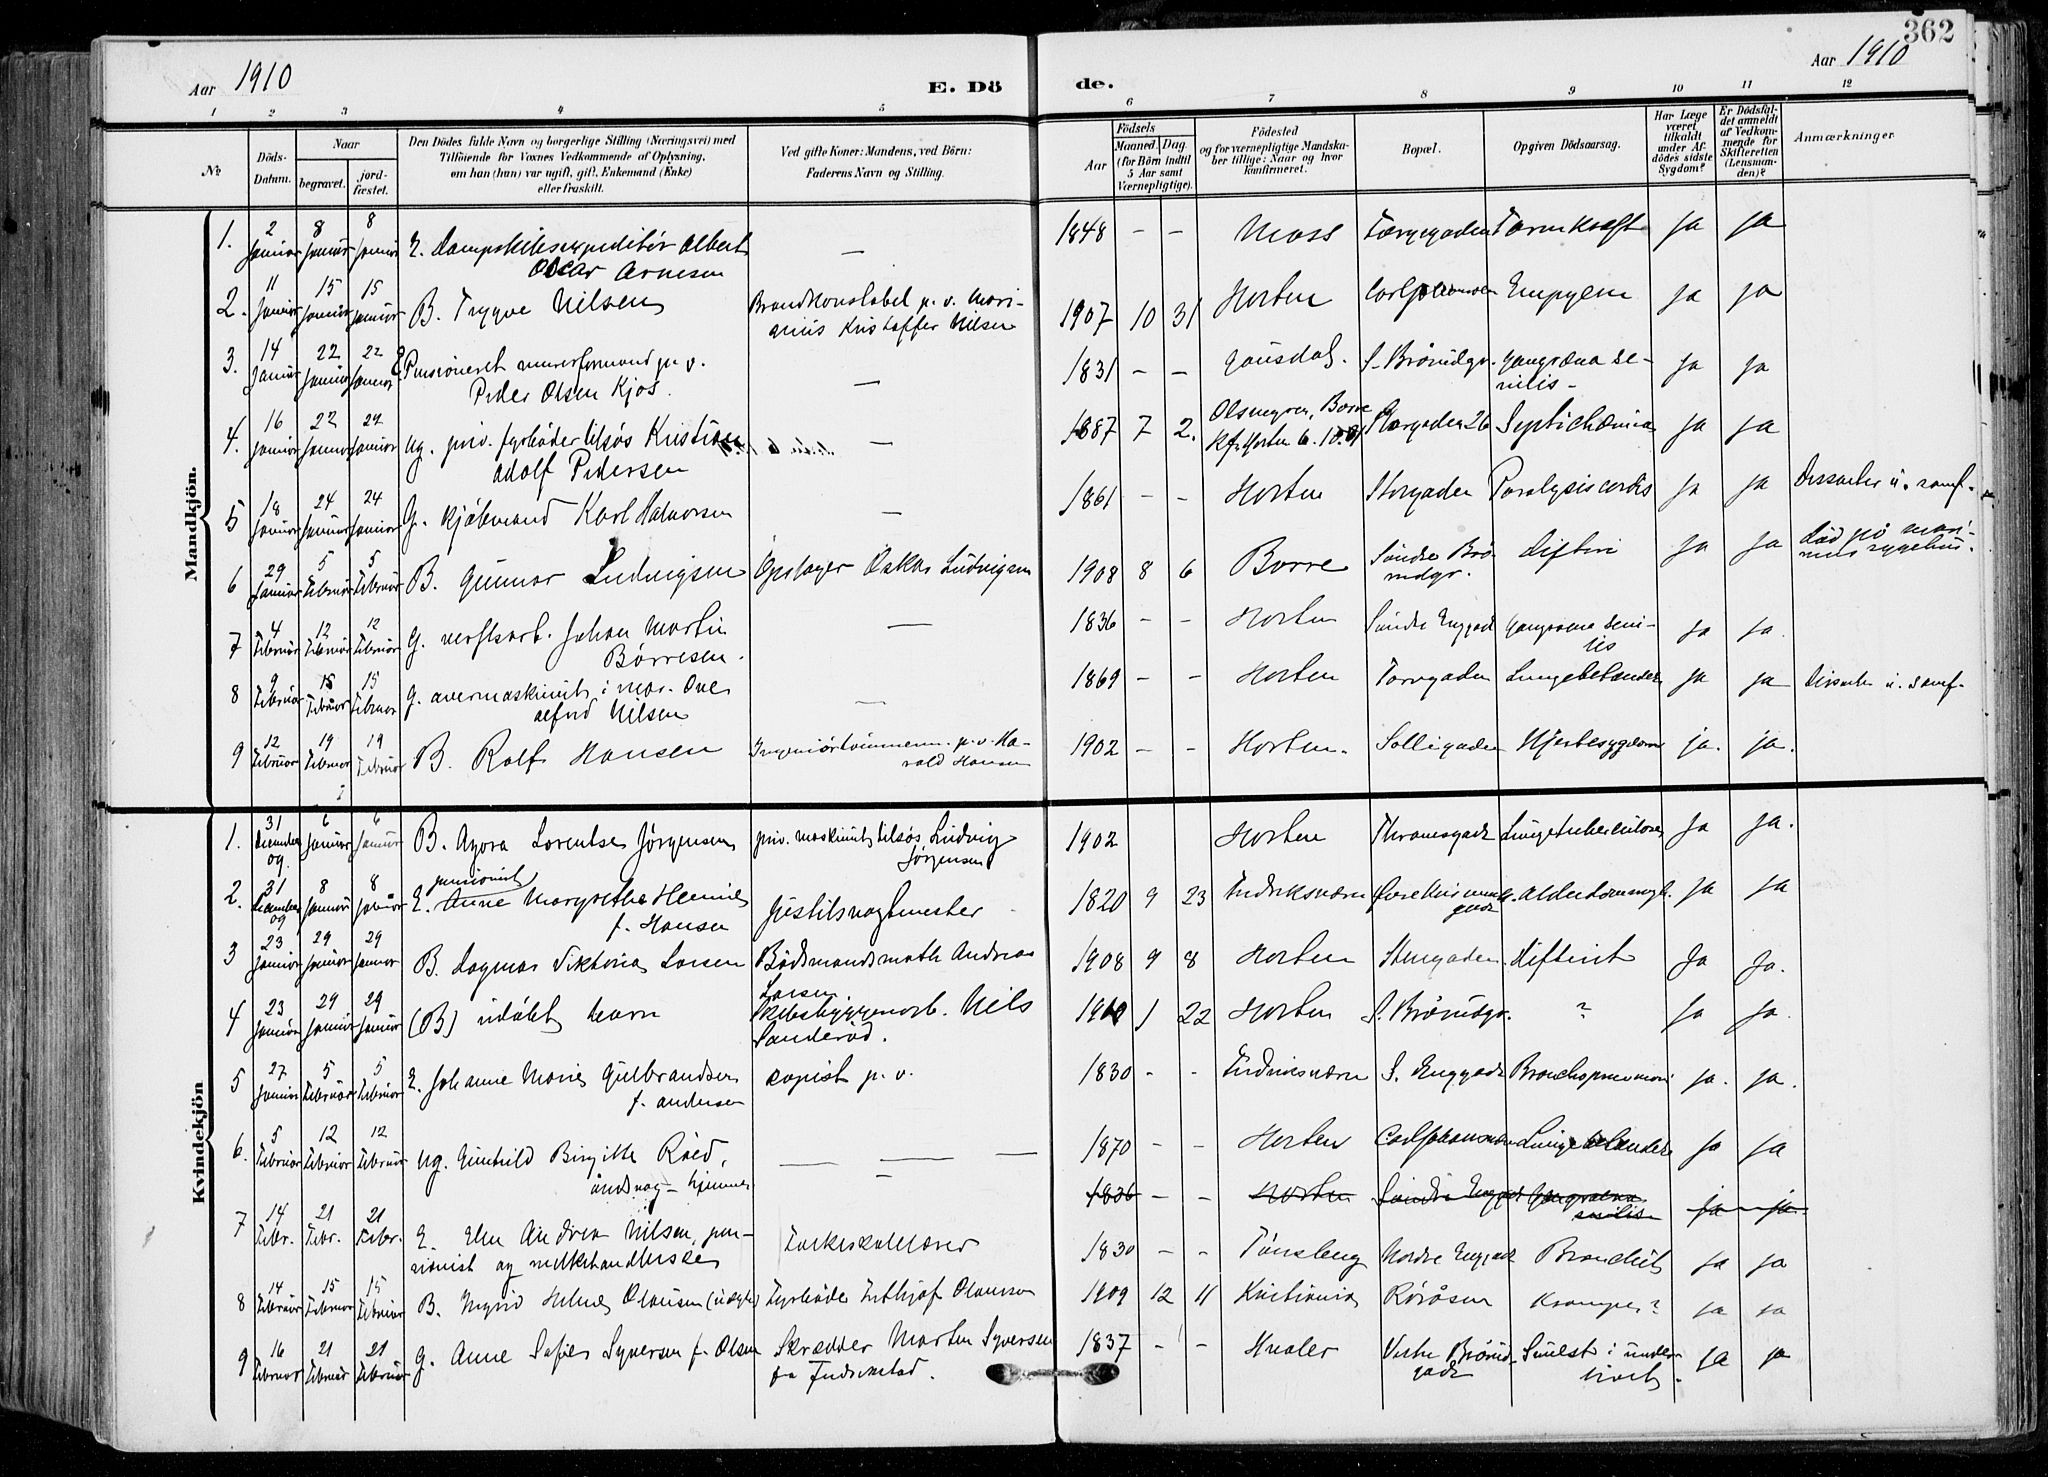 362
Aar 1910 E. Dö de. Aar 1910
1 2 3 4 5 6 7 8 9 10 11 12
№
Döds-Datum.
Naar
begravet.
jordfæstet.
Den Dödes fulde Navn og borgerlige Stilling (Næringsvei) med
Tilföiende for Voxnes Vedkommende af Oplysning,
om han (hun) var ugift, gift, Enkemand (Enke)
eller fraskilt.
Ved gifte Koner: Mandens, ved Börn:
Faderens Navn og Stilling.
Födsels
Aar
Maaned. Dag.
(for Börn indtil
5 Aar samt
Værnepligtige).
Födested
og for værnepligtige Mandska-
ber tillige: Naar og hvor
konfirmeret.
Bopæl.
Opgiven Dödsaarsag.
Har Læge
været
tilkaldt
under Af-
dödes sidste
Sygdom?
Er Dödsfal-
det anmeldt
af Vedkom-
mende for
Skifteretten
(Lensman-
den)?
Anmærkninger
Mandkjön.
1. 2 Januar 8 Januar 8 Januar E. Dampskibsexpeditör Albert Oscar Arnesen — 1848 - - Moss Torvgaden Tarmkræft ja ja
2. 11 Januar 15 Januar 15 Januar B. Trygve Nilsen Brandkonstabel p. v. Marinius Kristoffer Nilsen 1907 10 31 Horten Empyem ja ja
3. 14 Januar 22 Januar 22 Januar E Pensioneret murerformand p. v. Peder Olsen Kjos. — 1831 - - Gausdal. S. Brårudgt. Gangræna senilis - ja ja
4. 16 Januar 22 Januar 22 Januar ug. priv. fyrböder tilsøs Kristian Adolf Pedersen — 1887 7 2. Borre Kf. Horten Storgaden 26 Septichæmia ja ja
5 18 Januar 24 Januar 24 Januar G. Kjöbmand Karl Halvorsen — 1861 - - Horten Storgaden Paralysis cordis ja ja
6 29 Januar 5 Februar 5 Februar B. Gunnar Ludvigsen Opslager Oskar Ludvigsen 1908 8 6 Borre Söndre Brårudgt. Difteri ja ja Död på marinens sygehus.
7 4 Februar 12 Februar 12 Februar G. verftsarb. Johan Martin Börresen. — 1836 - - Horten Söndre Enggade Gangræna senilis ja ja.
8 9 Februar 15 Februar 15 Februar G. overmaskinist i mar. Ove Alfred Nilsen — 1869 - - Horten Torvgaden Lungebetændelse ja ja
9 12 Februar 19 Februar 19 Februar B. Rolf Hansen Ingeniörtömmerm. p. v. Harald Hansen 1902 - - Horten. Solligaden Hjertesygdom ja. ja.
Kvindekjön
1. 31 December 09 6 Januar 6 Januar B. Agora Lorentse Jørgensen priv. maskinist tilsøs Ludvig Jørgensen 1902 Horten Thranesgade Lungetuberkulose ja ja.
2. 31 December 09 8 Januar 8 Januar E. pensionist Anne Margrethe f. Hansen 1820 9 23 Fredriksværn Alderdomssvagh. ja ja
3 23 Januar 29 Januar 29 Januar B. Dagmar Viktoria Larsen Bådsmandsmath Andreas Larsen 1908 9 8 Horten Storgaden Difterit ja ja.
4 23 Januar 29 Januar 29 Januar (B) udöbt barn Skibsbyggerarb. Nils Sanderöd. 1910 1 22 Horten S. Brårudgt. ? ja ja.
5 27 Januar 5 Februar 5 Februar E. Johanne Marie Gulbrandsen f. Andersen copist p. v. 1830 - - Fredriksværn S. Enggade Bronchopneumoni ja. ja.
6. 5 Februar 12 Februar 12 Februar ug. Gunhild Birgitte Röed, åndssvag - hjemme — — — 1870 - - Horten Carljohansværn Lungebetændelse ja ja
1836 - - Horten Söndre Enggade Gangræna senilis ja ja.
7 14 Febr. 21 Febr. 21 Febr. E. Elen Andrea Nilsen, pensionist og melkehandlerske 1830 - - Tönsberg Nordre Enggade Bronchit ja ja
8 14 Februar 15 Februar 15 Februar B. Ingrid Helene Olausen (uægte) Fyrböder Frithjof Olausson 1909 12 11 Kristiania Råråsen Kramper? ja ja
9 16 Februar 21 Februar 21 Februar G. Anne Sofie Syversen f. Olsen Skrædder Morten Syversen fra Fredrikstad. 1837 - - Hvaler Vestre Brårudgade Svulst i underlivet. ja ja